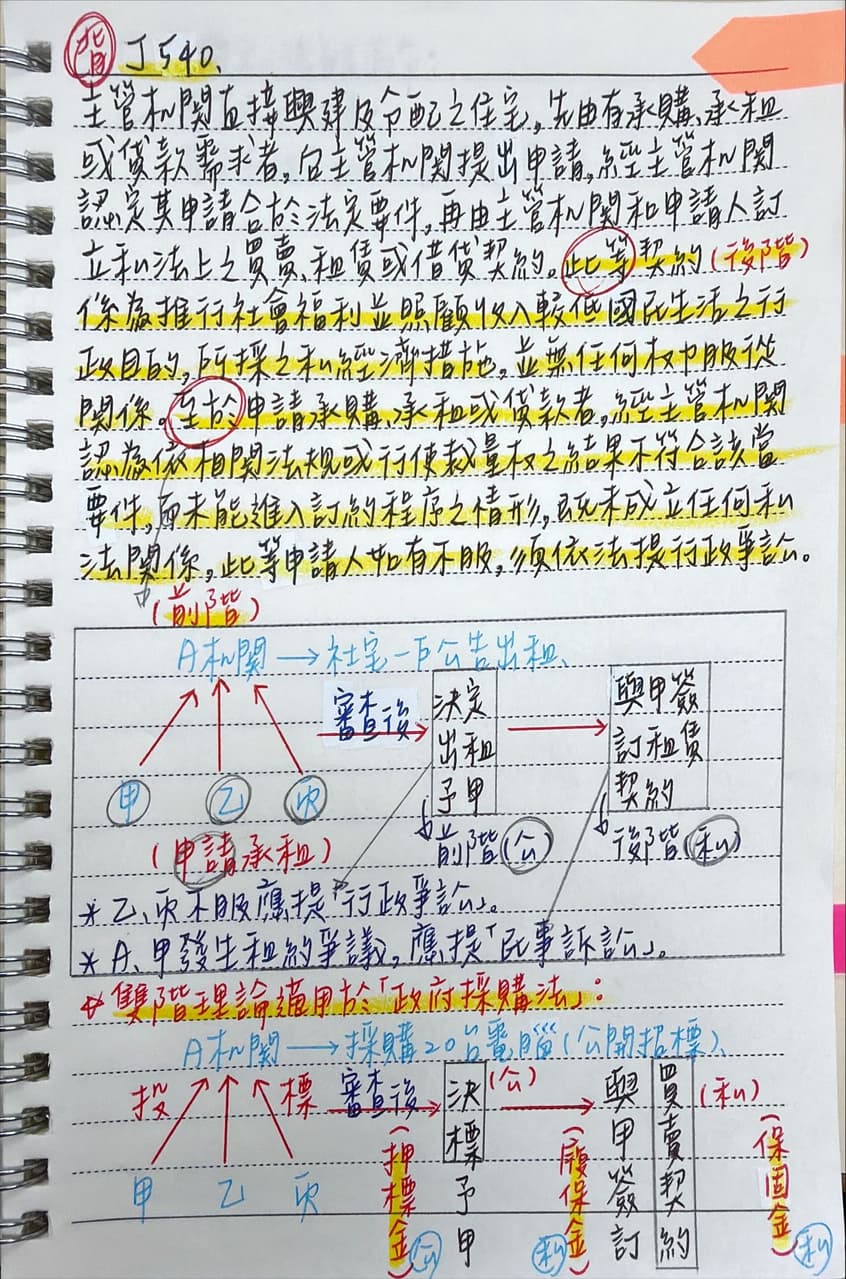 背 J540、
主管机関直接興建及分配之住宅，先由有承購、承租
或貸款需求者，向主管机関提出申請，經主管机関
認定其申請合於法定要件，再由主管机関和申請人訂
立私法上之買賣、租賃或借貸契約。此等契約(後階)
係為推行社會福利並照顧收入較低國民生活之行
政目的，所採之私經濟措施，並無任何权力服從
関係。至於申請承購、承租或貸款者，經主管机関
認為依相関法規或行使裁量权之結果不符合該當
要件，而未能進入訂約程序之情形，既未成立任何私
法関係，此等申請人如有不服，須依法提行政爭訟。
(前階)
A机関→社宅一戶公告出租、
審查後 決定出租予甲 → 與甲簽訂租賃契約
甲 乙 丙
前階(公) 後階(私)
(申請承租)
* 乙、丙不服應提「行政爭訟」。
* A、甲發生租約爭議，應提「民事訴訟」。
雙階理論適用於「政府採購法」：
A机関→採購20台電腦(公開招標)、
投標 審查後 決標予甲 (公) → 與甲簽訂買賣契約 (私)
甲 乙 丙
(押標金) 公 (履保金) 私 (保固金) 私